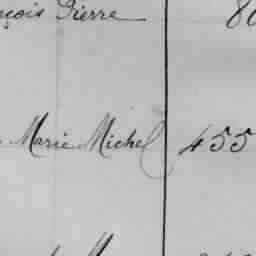 çois Pierre 80
Marie Michel 455